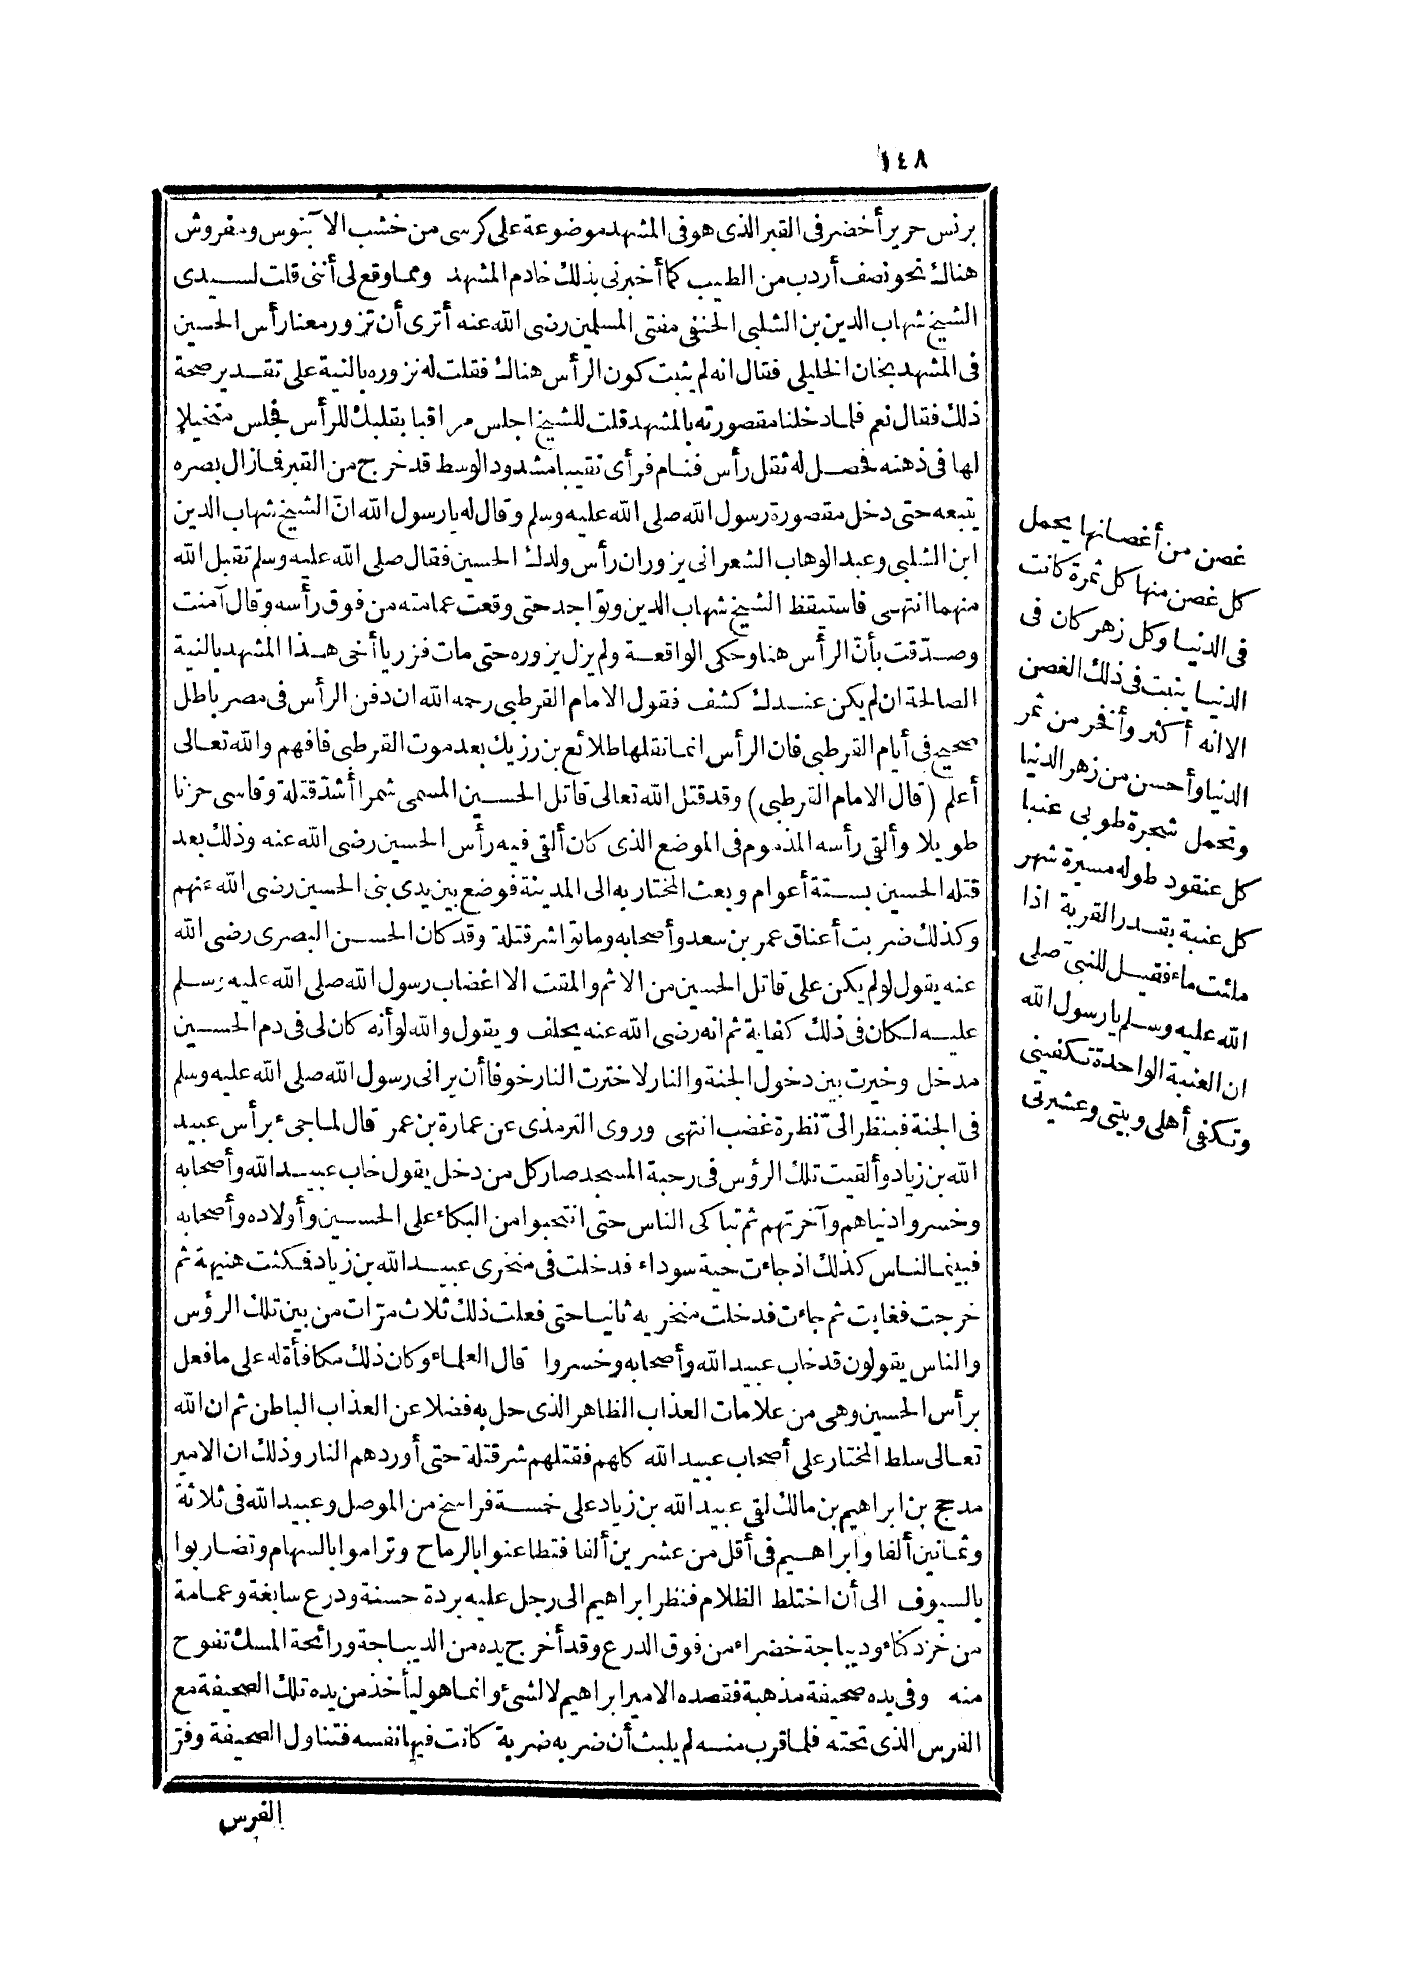 ١٤٨
برنس حرير أخضر فى القبر الذى هو فى المشهد موضوعة على كرسى من خشب الآبنوس ومفروش
هناك نحو نصف أردب من الطيب كما أخبرنى بذلك خادم المشهد ومما وقع لى أننى قلت لسيدى
الشيخ شهاب الدين بن الشلبى الحنفى مفتى المسلمين رضى الله عنه أترى أن تزور معنا رأس الحسين
فى المشهد بخان الخليلى فقال انه لم يثبت كون الرأس هناك فقلت له نزوره بالنية على تقدير صحة
ذلك فقال نعم فلما دخلنا مقصورته بالمشهد قلت للشيخ اجلس مراقبا بقلبك للرأس فجلس متخيلا
لها فى ذهنه فحصل له ثقل رأس فنام فرأى نقيبا مشدود الوسط قد خرج من القبر فما زال بصره
يتبعه حتى دخل مقصورة رسول الله صلى الله عليه وسلم وقال له يارسول الله انّ الشيخ شهاب الدين
ابن الشلبى وعبد الوهاب الشعرانى يزوران رأس ولدك الحسين فقال صلى الله عليه وسلم تقبل الله
منهما انتهى فاستيقظ الشيخ شهاب الدين وتواجد حتى وقعت عمامته من فوق رأسه وقال آمنت
وصدّقت بأنّ الرأس هنا وحكى الواقعة ولم يزل يزوره حتى مات فزر ياأخى هذا المشهد بالنية
الصالحة ان لم يكن عندك كشف فقول الامام القرطبى رحمه الله ان دفن الرأس فى مصر باطل
صحيح فى أيام القرطبى فان الرأس انما نقلها طلائع بن رزيك بعد موت القرطبى فافهم والله تعالى
أعلم (قال الامام القرطبى) وقد قتل الله تعالى قاتل الحسين المسمى شمرا أشدّ قتلة وقاسى حزنا
طويلا وألقى رأسه المذموم فى الموضع الذى كان ألقى فيه رأس الحسين رضى الله عنه وذلك بعد
قتله الحسين بستة أعوام وبعث المختار به الى المدينة فوضع بين يدى بنى الحسين رضى الله عنهم
وكذلك ضربت أعناق عمر بن سعد وأصحابه وماتوا شر قتلة وقد كان الحسن البصرى رضى الله
عنه يقول لولم يكن على قاتل الحسين من الاثم والمقت الا اغضاب رسول الله صلى الله عليه وسلم
عليه لكان فى ذلك كفاية ثم انه رضى الله عنه يحلف ويقول والله لوأنه كان لى فى دم الحسين
مدخل وخيرت بين دخول الجنة والنار لاخترت النار خوفا أن يرانى رسول الله صلى الله عليه وسلم
فى الجنة فينظر الىّ نظرة غضب انتهى وروى الترمذى عن عمارة بن عمر قال لما جىء برأس عبيد
الله بن زياد وألقيت تلك الرؤس فى رحبة المسجد صار كل من دخل يقول خاب عبيد الله وأصحابه
وخسروا دنياهم وآخرتهم ثم تباكى الناس حتى انتحبوا من البكاء على الحسين وأولاده وأصحابه
فبينما الناس كذلك اذ جاءت حية سوداء فدخلت فى منخرى عبيد الله بن زياد فمكثت هنيهة ثم
خرجت فغابت ثم جاءت فدخلت منخريه ثانيا حتى فعلت ذلك ثلاث مرّات من بين تلك الرؤس
والناس يقولون قد خاب عبيد الله وأصحابه وخسروا قال العلماء وكان ذلك مكافأة له على ما فعل
برأس الحسين وهى من علامات العذاب الظاهر الذى حل به فضلا عن العذاب الباطن ثم ان الله
تعالى سلط المختار على أصحاب عبيد الله كلهم فقتلهم شر قتلة حتى أوردهم النار وذلك ان الامير
مدحج بن ابراهيم بن مالك لقى عبيد الله بن زياد على خمسة فراسخ من الموصل وعبيد الله فى ثلاثة
وثمانين ألفا وابراهيم فى أقل من عشرين ألفا فتطاعنوا بالرماح وتراموا بالسهام وتضاربوا
بالسيوف الى أن اختلط الظلام فنظر ابراهيم الى رجل عليه بردة حسنة ودرع سابغة وعمامة
من خز دكناء وديباجة خضراء من فوق الدرع وقد أخرج يده من الديباجة ورائحة المسك تفوح
منه وفى يده صحيفة مذهبة فقصده الامير ابراهيم لا لشئ وانما هو ليأخذ من يده تلك الصحيفة مع
الفرس الذى تحته فلما قرب منه لم يلبث أن ضربه ضربة كانت فيها نفسه فتناول الصحيفة وفرّ
الفرس
غصن من أغصانها يحمل
كل غصن منها كل ثمرة كانت
فى الدنيا وكل زهر كان فى
الدنيا ينبت فى ذلك الغصن
الا انه أكثر وأفخر من ثمر
الدنيا وأحسن من زهر الدنيا
وتحمل شجرة طوبى عنبا
كل عنقود طوله مسيرة شهر
كل عنبة بقدر القربة اذا
ملئت ماء فقيل للنبىّ صلى
الله عليه وسلم يا رسول الله
ان العنبة الواحدة تكفينى
وتكفى أهلى وبيتى وعشيرتى